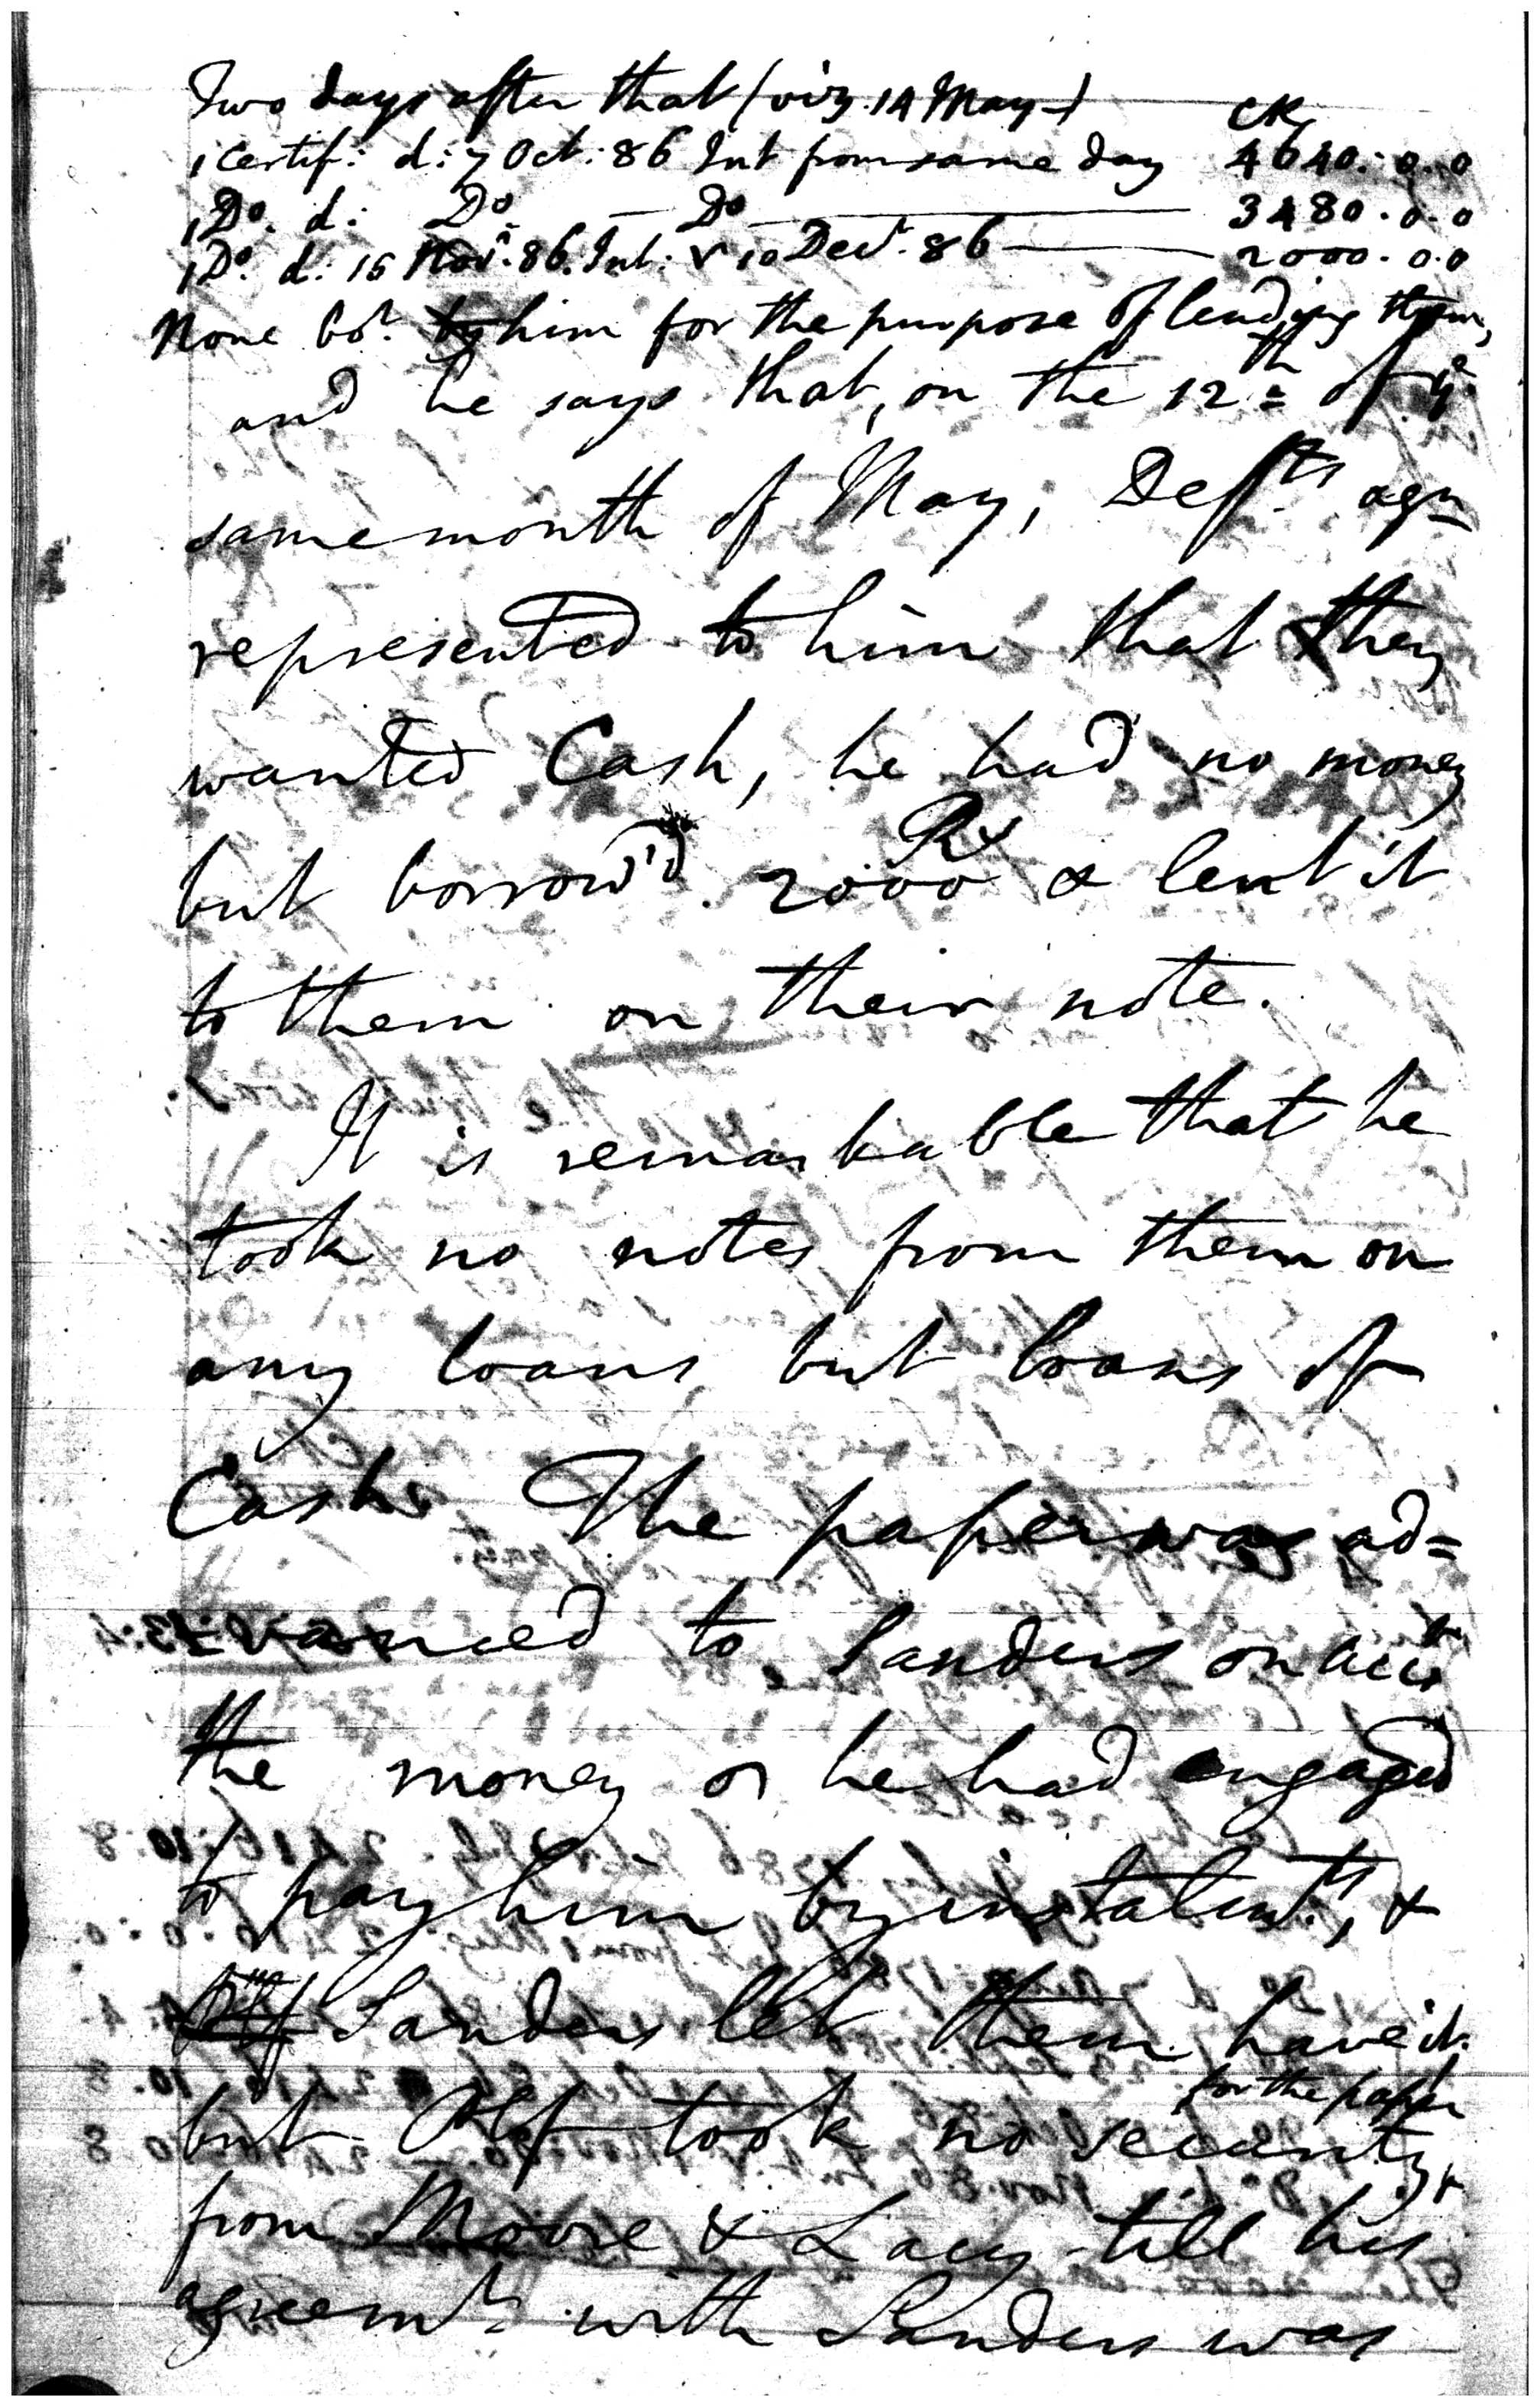 Two days after that (viz. 14 May)
CRs
1 Certif: d: 7 Oct: 86 Int from same day 4640. 0. 0
1 Do. d: Do. — Do — 3480. 0. 0
1 Do. d: 15 Novr. 86. Int: 10 Decr. 86 — 2000. 0. 0
None bot. by him for the purpose of lending them,
and he says that, on the 12th of ye
same month of May, Defts agn
represented to him that they
wanted Cash, he had no money
but borrow'd 2000 Rs & lent it
to them on their note.
It is remarkable that he
took no notes from them on
any loans but loans of
Cash. The paper was ad=
vanced to Sanders on acct
the money or he had engaged
to pay him by instalmts, &
Sanders let them have it.
but Plf took no security for the paper
from Moore & Lacy till his
agreemt with Sanders was